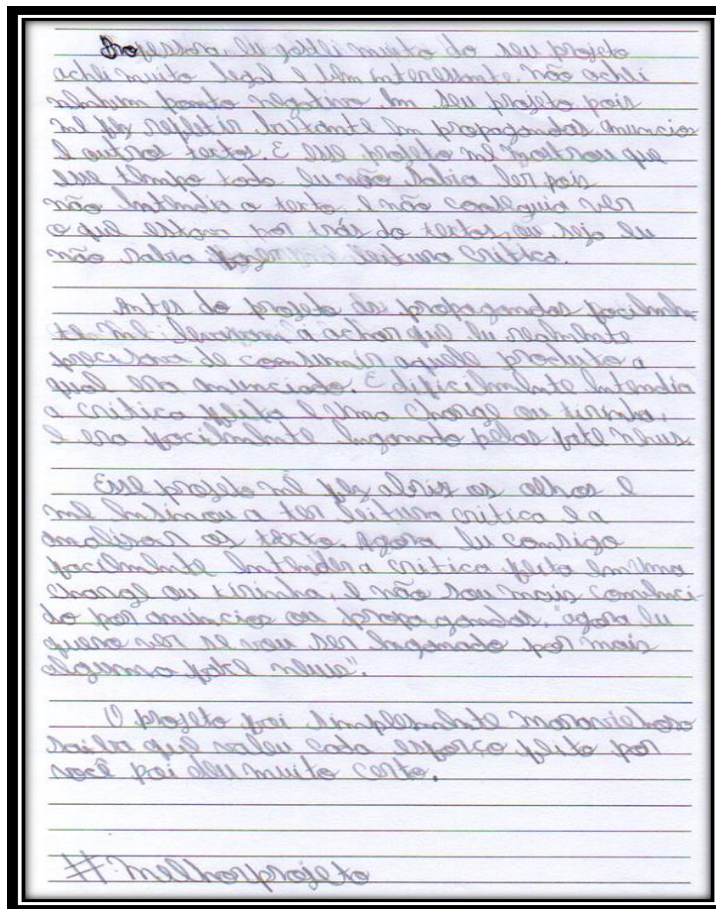 Professora, eu gostei muito do seu projeto
achei muito legal e bem interessante. não achei
nenhum ponto negativo em seu projeto pois
me fez refletir bastante em propagandas, anuncios
e outros textos. E esse projeto me mostrou que
esse tempo todo eu não sabia ler pois
não entendia o texto e não conseguia ver
o que estava por trás do textos, ou seja eu
não sabia fazer leitura critica.
Antes do projeto as propagandas facilmen-
te me levavam a achar que eu realmente
precisava de consumir aquele produto a
qual era anunciado. E dificilmente entendia
a critica feita e uma charge ou tirinha,
e era facilmente enganado pelas fake neus.
Esse projeto me fez abrir os olhos e
me ensinou a ter leitura critica e a
analisar os texto. Agora eu consigo
facilmente entender a critica feita em uma
charge ou tirinha, e não sou mais convenci-
do por anúncios ou propagandas. "agora eu
quero ver se vou ser enganado por mais
alguma fake neus".
O projeto foi simplesmente maravilhoso
saiba que valeu cada esforço feito por
você poi deu muito certo.
#melhorprojeto